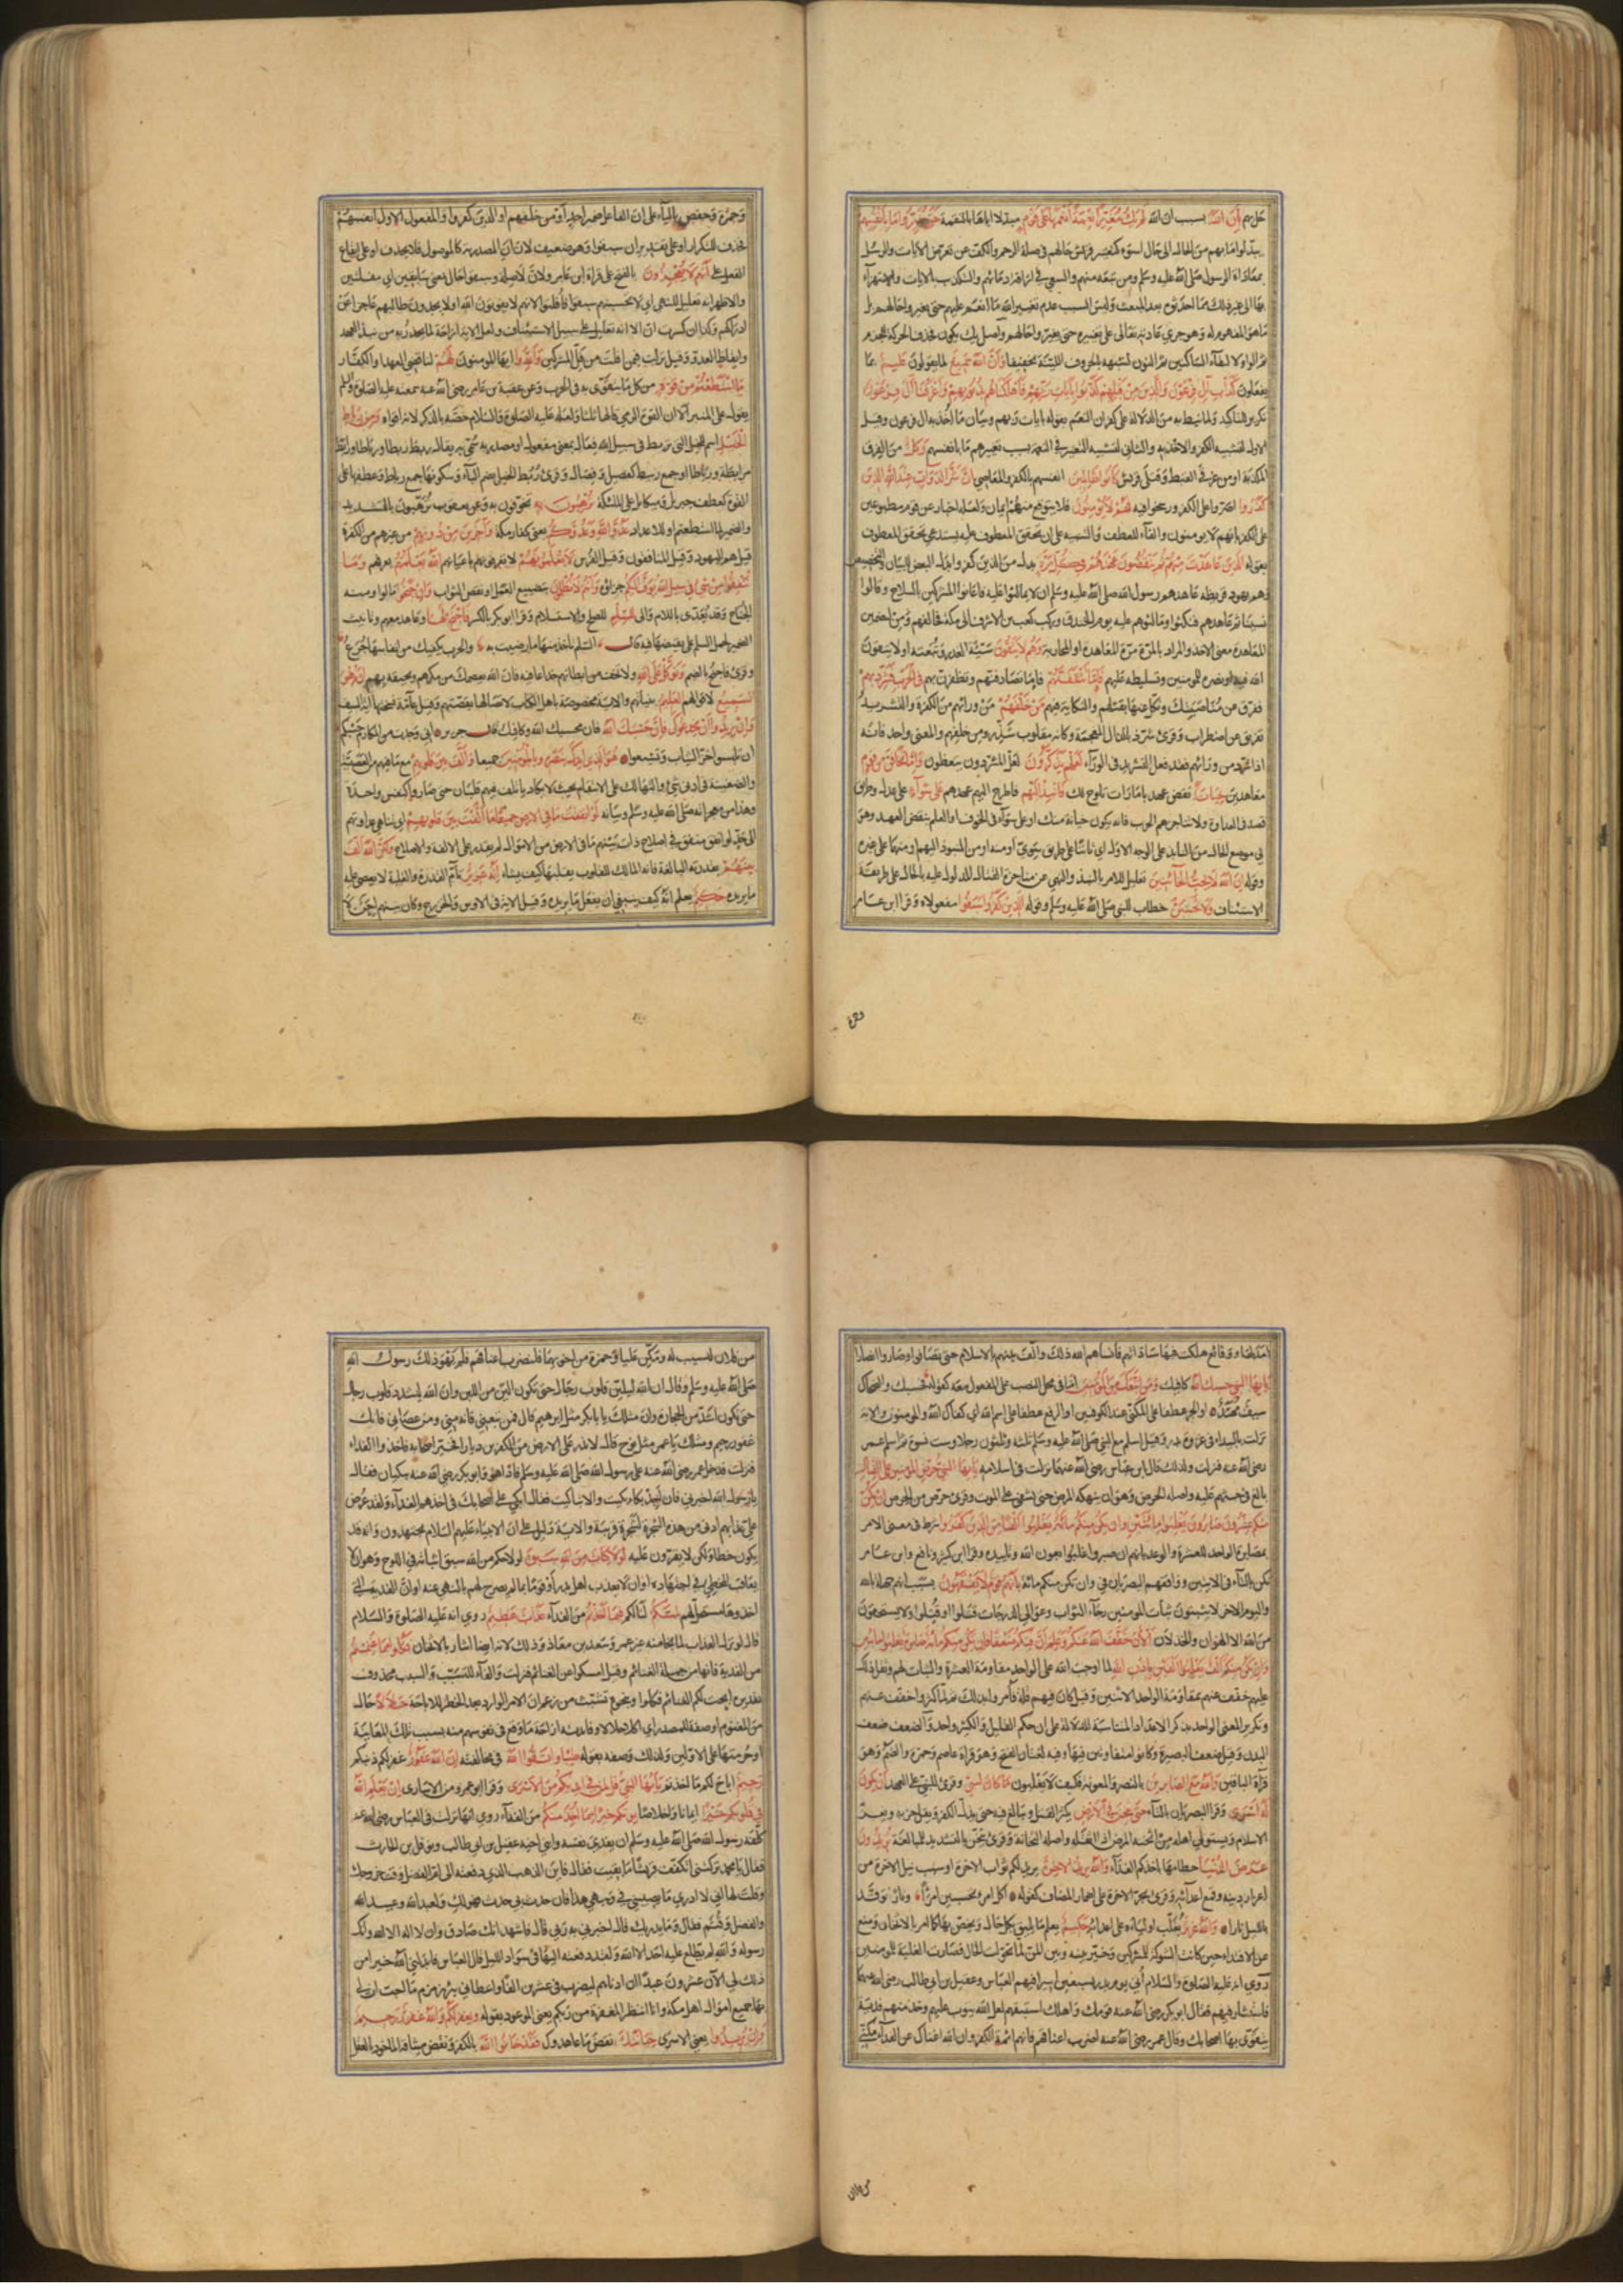 حل بهم بأن الله بسبب أن الله لم يك مغيرا نعمة أنعمها على قوم مبدلا اياها بالنقمة حتى يغيروا ما بأنفسهم
يبدلوا ما بهم من الحال الى حال اسوء كتغيير قريش حالهم في صلة الرحم والكف عن تعرض الايات والرسل
بمعاداة الرسول صلى الله عليه وسلم ومن تبعه منهم والسعي في اراقة دمائهم والتكذيب بالايات والاستهزاء
بها الى غير ذلك مما احدثوه بعد المبعث وليس السبب عدم تغيير الله ما انعم عليهم حتى يغيروا حالهم بل
ما هو المفهوم له وهو جري عادته تعالى على تغييره حتى يغيروا حالهم واصل يك يكون فحذف الحركة للجزم
ثم الواو لالتقاء الساكنين ثم النون لشبهه بالحروف اللينة تخفيفا وأن الله سميع لما يقولون عليم بما
يفعلون كدأب آل فرعون والذين من قبلهم كذبوا بآيات ربهم فأهلكناهم بذنوبهم وأغرقنا آل فرعون
تكرير للتأكيد ولما نيط به من الدلالة على كفران النعم بقوله بايات ربهم وبيان ما اخذ به ال فرعون وقيل
الاول لتشبيه الكفر والاخذ به والثاني لتشبيه التغيير في النعمة بسبب تغييرهم ما بانفسهم وكل من الفرق
المكذبة او من غرقى القبط وقتلى قريش كانوا ظالمين انفسهم بالكفر والمعاصي إن شر الدواب عند الله الذين
كفروا اصروا على الكفر ورسخوا فيه فهم لا يؤمنون فلا يتوقع منهم ايمان ولعله اخبار عن قوم مطبوعين
على الكفر بانهم لا يؤمنون والفاء للعطف والتنبيه على ان تحقق المعطوف عليه يستدعي تحقق المعطوف
بقوله الذين عاهدت منهم ثم ينقضون عهدهم في كل مرة بدل من الذين كفروا بدل البعض للبيان والتخصيص
وهم يهود قريظة عاهدهم رسول الله صلى الله عليه وسلم ان لا يمالئوا عليه فاعانوا المشركين بالسلاح وقالوا
نسينا ثم عاهدهم فنكثوا ومالئوهم عليه يوم الخندق وركب كعب بن الاشرف الى مكة فحالفهم ومن لتضمين
المعاهدة معنى الاخذ والمراد بالمرة مرة المعاهدة او المحاربة وهم لا يتقون سبة الغدر ومغبته او لا يتقون
الله فيه او نصره للمؤمنين وتسليطه عليهم فإما تثقفنهم فاما تصادفنهم وتظفرن بهم في الحرب فشرد بهم
ففرق عن مناصبتك ونكل عنها بقتلهم والنكاية فيهم من خلفهم من ورائهم من الكفرة والتشريد
تفريق عن اضطراب وقرئ شرذ بالذال المعجمة وكانه مقلوب شذر ومن خلفهم والمعنى واحد فانه
اذا شرد من ورائهم فقد فعل التشريد في الوراء لعلهم يذكرون لعل المشردين يتعظون وإما تخافن من قوم
معاهدين خيانة نقض عهد بامارات تلوح لك فانبذ إليهم فاطرح اليهم عهدهم على سواء على عدل وطريق
قصد في العداوة ولا تناجزهم الحرب فانه يكون خيانة منك او على سواء في الخوف او العلم بنقض العهد وهو
في موضع الحال من النابذ على الوجه الاول اي ثابتا على طريق سوي او منه او من المنبوذ اليهم او منهما على غيره
وقوله إن الله لا يحب الخائنين تعليل للامر بالنبذ والنهي عن مناجزة القتال المدلول عليه بالحال على طريقة
الاستئناف ولا تحسبن خطاب للنبي صلى الله عليه وسلم وقوله الذين كفروا سبقوا مفعولاه وقرا ابن عامر
وحمزة وحفص بالياء على ان الفاعل ضمير احد او من خلفهم او الذين كفروا والمفعول الاول انفسهم
فحذف للتكرار او على تقدير ان سبقوا وهو ضعيف لان ان المصدرية كالموصول فلا تحذف او على ايقاع
الفعل على أنهم لا يعجزون بالفتح على قراءة ابن عامر ولان لا صلة وسبقوا حال بمعنى سابقين اي مفلتين
والاظهر انه تعليل للنهي اي لا تحسبنهم سبقوا فافلتوا لانهم لا يفوتون الله او لا يجدون طالبهم عاجزا عن
ادراكهم وكذا ان كسرت ان الا انه تعليل على سبيل الاستئناف ولعل الاية ازاحة لما يحذر به من نبذ العهد
وايقاظ العدو وقيل نزلت فيمن افلت من فل المشركين وأعدوا ايها المؤمنون لهم لناقضي العهد او الكفار
ما استطعتم من قوة من كل ما يتقوى به في الحرب وعن عقبة بن عامر رضي الله عنه سمعته عليه الصلوة والسلام
يقول على المنبر الا ان القوة الرمي قالها ثلثا ولعله عليه الصلوة والسلام خصه بالذكر لانه اقواه ومن رباط
الخيل اسم للخيل التي تربط في سبيل الله فعال بمعنى مفعول او مصدر به سمي به يقال ربط ربطا ورباطا ورابط
مرابطة ورباطا او جمع ربيط كفصيل وفصال وقرئ ربط الخيل بضم الباء وسكونها جمع رباط وعطفها على
القوة كعطف جبريل وميكايل على الملئكة ترهبون به تخوفون به وعن يعقوب ترهبون بالتشديد
والضمير لما استطعتم او للاعداد عدو الله وعدوكم يعني كفار مكة وآخرين من دونهم من غيرهم من الكفرة
قيل هم اليهود وقيل المنافقون وقيل الفرس لا تعلمونهم لا تعرفونهم باعيانهم الله يعلمهم يعرفهم وما
تنفقوا من شيء في سبيل الله يوف إليكم جزاؤه وأنتم لا تظلمون بتضييع العمل او نقص الثواب وإن جنحوا مالوا ومنه
الجناح وقد يعدى باللام والى للسلم للصلح والاستسلام وقرا ابو بكر بالكسر فاجنح لها وعاهد معهم وتانيث
الضمير لحمل السلم على نقيضها فيه قال السلم تاخذ منها ما رضيت به والحرب يكفيك من انفاسها جرع
وقرئ فاجنح بالضم وتوكل على الله ولا تخف من ابطانهم خداعا فيه فان الله يعصمك من مكرهم ويحيقه بهم إنه هو
السميع لاقوالهم العليم بنياتهم والاية مخصوصة باهل الكتاب لاتصالها بقصتهم وقيل عامة نسختها اية السيف
وإن يريدوا أن يخدعوك فإن حسبك الله فان محسبك الله وكافيك قال جرير اني وجدت من المكارم حسبكم
ان تلبسوا خز الثياب وتشبعوا هو الذي أيدك بنصره وبالمؤمنين جميعا وألف بين قلوبهم مع ما فيهم من العصبية
والضغينة في ادنى شئ والتهالك على الانتقام بحيث لا يكاد ياتلف فيهم قلبان حتى صاروا كنفس واحدة
وهذا من معجزاته صلى الله عليه وسلم وبيانه لو أنفقت ما في الأرض جميعا ما ألفت بين قلوبهم اي تناهي عداوتهم
الى حد لو انفق منفق في اصلاح ذات بينهم ما في الارض من الاموال لم يقدر على الالفة والاصلاح ولكن الله ألف
بينهم بقدرته البالغة فانه المالك للقلوب يقلبها كيف يشاء إنه عزيز تام القدرة والغلبة لا يعصى عليه
ما يريده حكيم يعلم انه كيف ينبغي ان يفعل ما يريده وقيل الاية في الاوس والخزرج وكان بينهم احن لا
امد لها ووقائع هلكت فيها ساداتهم فانساهم الله ذلك والف بينهم بالاسلام حتى تصافوا وصاروا انصارا
يا أيها النبي حسبك الله كافيك ومن اتبعك من المؤمنين اما في محل النصب على المفعول معه كقوله فحسبك والضحاك
سيف مهند او الجر عطفا على المكني عند الكوفيين او الرفع عطفا على اسم الله اي كفاك الله والمؤمنون والاية
نزلت بالبيداء في غزوة بدر وقيل اسلم مع النبي صلى الله عليه وسلم ثلثة وثلثون رجلا وست نسوة ثم اسلم عمر
رضي الله عنه فنزلت ولذلك قال ابن عباس رضي الله عنهما نزلت في اسلامه يا أيها النبي حرض المؤمنين على القتال
بالغ في حثهم عليه واصله الحرض وهو ان ينهكه المرض حتى يشفي على الموت وقرئ حرص من الحرص إن يكن
منكم عشرون صابرون يغلبوا مائتين وإن يكن منكم مائة يغلبوا ألفا من الذين كفروا شرط في معنى الامر
بمصابرة الواحد للعشرة والوعد بانهم ان صبروا غلبوا بعون الله وتاييده وقرا ابن كثير ونافع وابن عامر
تكن بالتاء في الايتين ووافقهم البصريان في وان تكن منكم مائة بأنهم قوم لا يفقهون بسبب انهم جهلة بالله
واليوم الاخر لا يثبتون ثبات المؤمنين رجاء الثواب وعوالي الدرجات قتلوا او قتلوا ولا يستحقون
من الله الا الهوان والخذلان الآن خفف الله عنكم وعلم أن فيكم ضعفا فإن يكن منكم مائة صابرة يغلبوا مائتين
وإن يكن منكم ألف يغلبوا ألفين بإذن الله لما اوجب الله على الواحد مقاومة العشرة والثبات لهم وثقل ذلك
عليهم خفف عنهم بمقاومة الواحد الاثنين وقيل كان فيهم قلة فامروا بذلك ثم لما كثروا خفف عنهم
وتكرير المعنى الواحد بذكر الاعداد المتناسبة للدلالة على ان حكم القليل والكثير واحد والضعف ضعف
البدن وقيل ضعف البصيرة وكانوا متفاوتين فيها وفيه لغتان الفتح وهو قراءة عاصم وحمزة والضم وهو
قراءة الباقين والله مع الصابرين بالنصر والمعونة فكيف لا يغلبون ما كان لنبي وقرئ للنبي على العهد أن يكون
له أسرى وقرا البصريان بالتاء حتى يثخن في الأرض يكثر القتل ويبالغ فيه حتى يذل الكفر ويقل حزبه ويعز
الاسلام ويستولي اهله من اثخنه المرض اذا اثقله واصله الثخانة وقرئ يثخن بالتشديد للمبالغة تريدون
عرض الدنيا حطامها باخذكم الفداء والله يريد الآخرة يريد لكم ثواب الاخرة او سبب نيل الاخرة من
اعزاز دينه وقمع اعدائه وقرئ بجر الاخرة على اضمار المضاف كقوله اكل امرئ تحسبين امرأ ونار توقد
بالليل نارا والله عزيز يغلب اولياءه على اعدائه حكيم يعلم ما يليق بكل حال ويخصه بها كما امر بالاثخان ومنع
عن الافتداء حين كانت الشوكة للمشركين وخير بينه وبين المن لما تحولت الحال وصارت الغلبة للمؤمنين
روي انه عليه الصلوة والسلام اتي يوم بدر بسبعين اسيرا فيهم العباس وعقيل بن ابي طالب رضي الله عنهما
فاستشار فيهم فقال ابو بكر رضي الله عنه قومك واهلك استبقهم لعل الله يتوب عليهم وخذ منهم فدية
يتقوى بها اصحابك وقال عمر رضي الله عنه اضرب اعناقهم فانهم ائمة الكفر وان الله اغناك عن الفداء مكني
من فلان لنسيب له ومكن عليا وحمزة من اخويهما فلنضرب اعناقهم فلم يهو ذلك رسول الله
صلى الله عليه وسلم وقال ان الله ليلين قلوب رجال حتى تكون الين من اللبن وان الله ليشدد قلوب رجال
حتى تكون اشد من الحجارة وان مثلك يا ابا بكر مثل ابرهيم قال فمن تبعني فانه مني ومن عصاني فانك
غفور رحيم ومثلك يا عمر مثل نوح قال لا تذر على الارض من الكافرين ديارا فخير اصحابه فاخذوا الفداء
فنزلت فدخل عمر رضي الله عنه على رسول الله صلى الله عليه وسلم فاذا هو وابو بكر رضي الله عنه يبكيان فقال
يا رسول الله اخبرني فان اجد بكاء بكيت والا تباكيت فقال ابكي على اصحابك في اخذهم الفداء ولقد عرض
علي عذابهم ادنى من هذه الشجرة لشجرة قريبة والاية دليل على ان الانبياء عليهم السلام مجتهدون وانه قد
يكون خطا ولكن لا يقرون عليه لولا كتاب من الله سبق لولا حكم من الله سبق اثباته في اللوح وهو ان لا
يعاقب المخطئ في اجتهاده او ان لا يعذب اهل بدر او قوما بما لم يصرح لهم بالنهي عنه او ان الفدية التي
اخذوها ستحل لهم لمسكم لنالكم فيما أخذتم من الفداء عذاب عظيم روي انه عليه الصلوة والسلام
قال لو نزل العذاب لما نجا منه غير عمر وسعد بن معاذ وذلك لانه ايضا اشار بالاثخان فكلوا مما غنمتم
من الفدية فانها من جملة الغنائم وقيل امسكوا عن الغنائم فنزلت والفاء للتسبيب والسبب محذوف
تقديره ابحت لكم الغنائم فكلوا وبنحوه تشبث من زعم ان الامر الوارد بعد الحظر للاباحة حلالا حال
من المغنوم او صفة للمصدر اي اكلا حلالا وفائدته ازاحة ما وقع في نفوسهم منه بسبب تلك المعاتبة
او حرمتها على الاولين ولذلك وصفه بقوله طيبا واتقوا الله في مخالفته إن الله غفور غفر لكم ذنبكم
رحيم اباح لكم ما اخذتم يا أيها النبي قل لمن في أيديكم من الأسرى وقرا ابو عمرو من الاسارى إن يعلم الله
في قلوبكم خيرا ايمانا واخلاصا يؤتكم خيرا مما أخذ منكم من الفداء روي انها نزلت في العباس رضي الله عنه
كلفه رسول الله صلى الله عليه وسلم ان يفدي نفسه وابني اخيه عقيل بن ابي طالب ونوفل بن الحارث
فقال يا محمد تركتني اتكفف قريشا ما بقيت فقال فاين الذهب الذي دفعته الى ام الفضل وقت خروجك
وقلت لها اني لا ادري ما يصيبني في وجهي هذا فان حدث بي حدث فهو لك ولعبد الله وعبيد الله
والفضل وقثم فقال وما يدريك قال اخبرني به ربي قال فاشهد انك صادق وان لا اله الا الله وانك
رسوله والله لم يطلع عليه احد الا الله ولقد دفعته اليها في سواد الليل قال العباس فابدلني الله خيرا من
ذلك لي الآن عشرون عبدا ان ادناهم ليضرب في عشرين الفا واعطاني زمزم ما احب ان لي
بها جميع اموال اهل مكة وانا انتظر المغفرة من ربكم يعني الموعود بقوله ويغفر لكم والله غفور رحيم
وإن يريدوا يعني الاسرى خيانتك نقض ما عاهدوك فقد خانوا الله بالكفر ونقض ميثاقه الماخوذ بالعقل